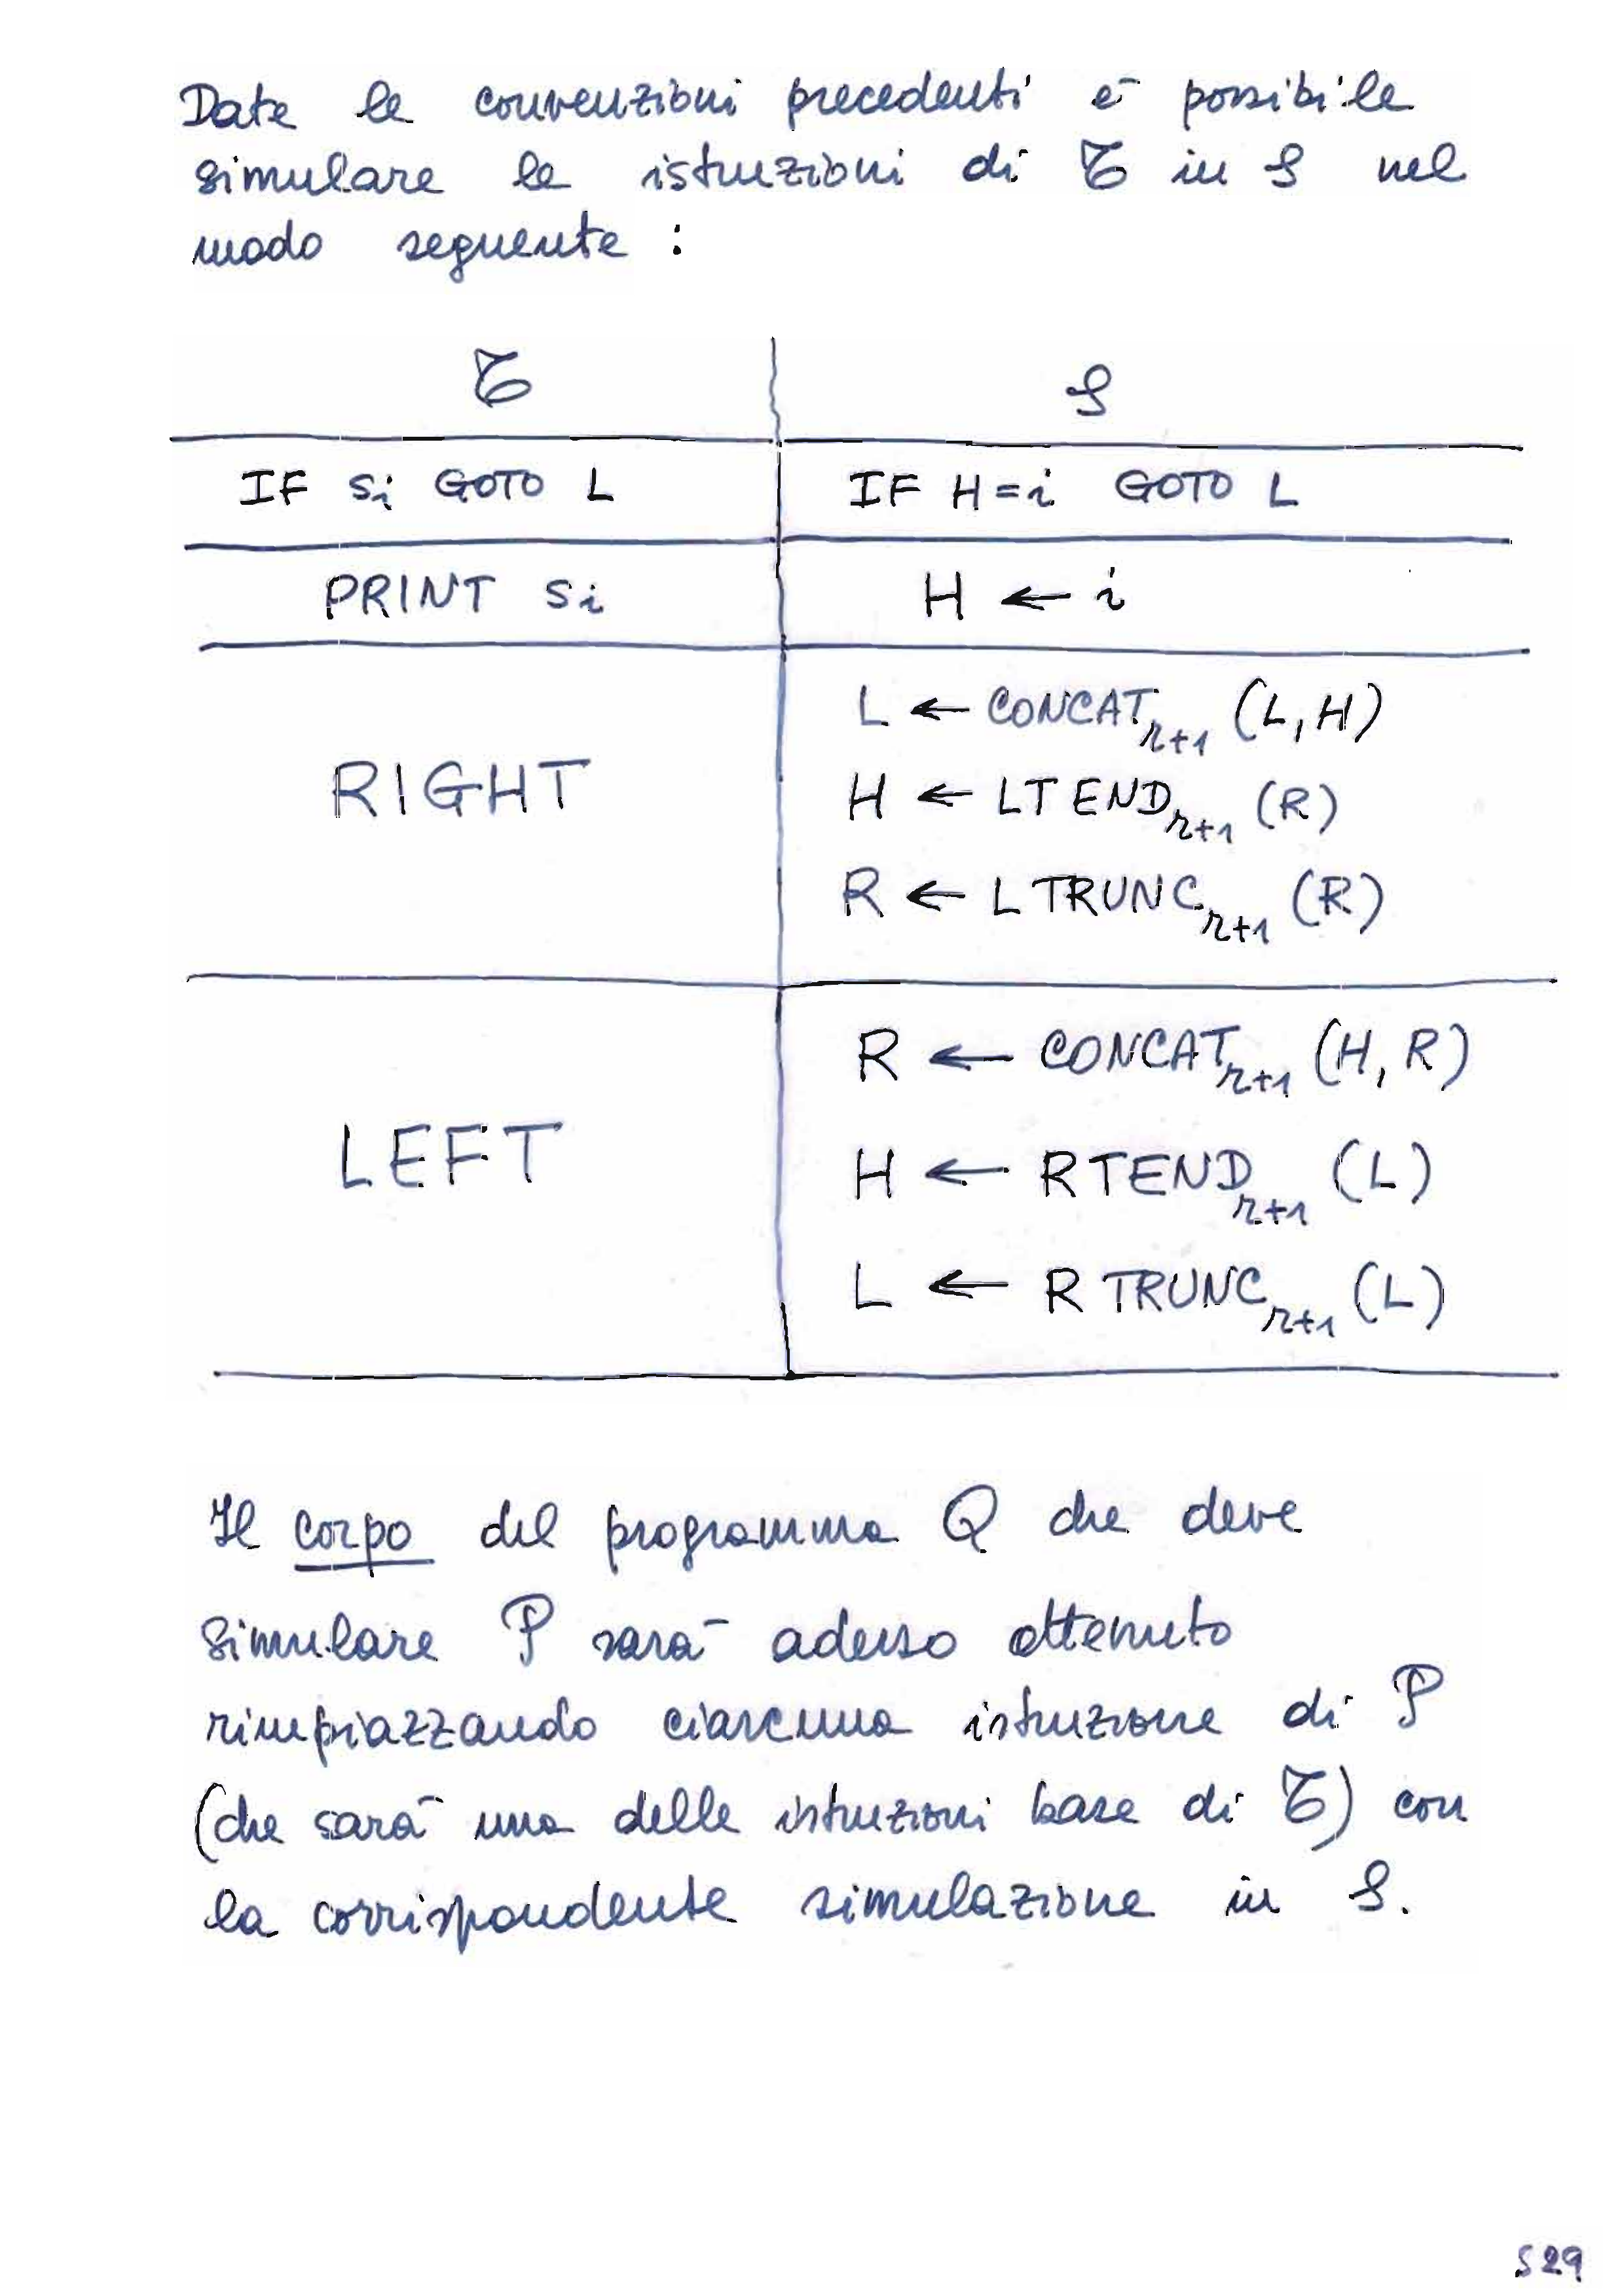 Date le convenzioni precedenti è possibile
simulare le istruzioni di 𝒯 in 𝒮 nel
modo seguente :
𝒯 𝒮
IF si GOTO L IF H=i GOTO L
PRINT si H ← i
RIGHT
L ← CONCAT r+1 (L, H)
H ← LTEND r+1 (R)
R ← LTRUNC r+1 (R)
LEFT
R ← CONCAT r+1 (H, R)
H ← RTEND r+1 (L)
L ← RTRUNC r+1 (L)
Il corpo del programma Q che deve
simulare 𝒫 sarà adesso ottenuto
rimpiazzando ciascuna istruzione di 𝒫
(che sarà una delle istruzioni base di 𝒯) con
la corrispondente simulazione in 𝒮.
529